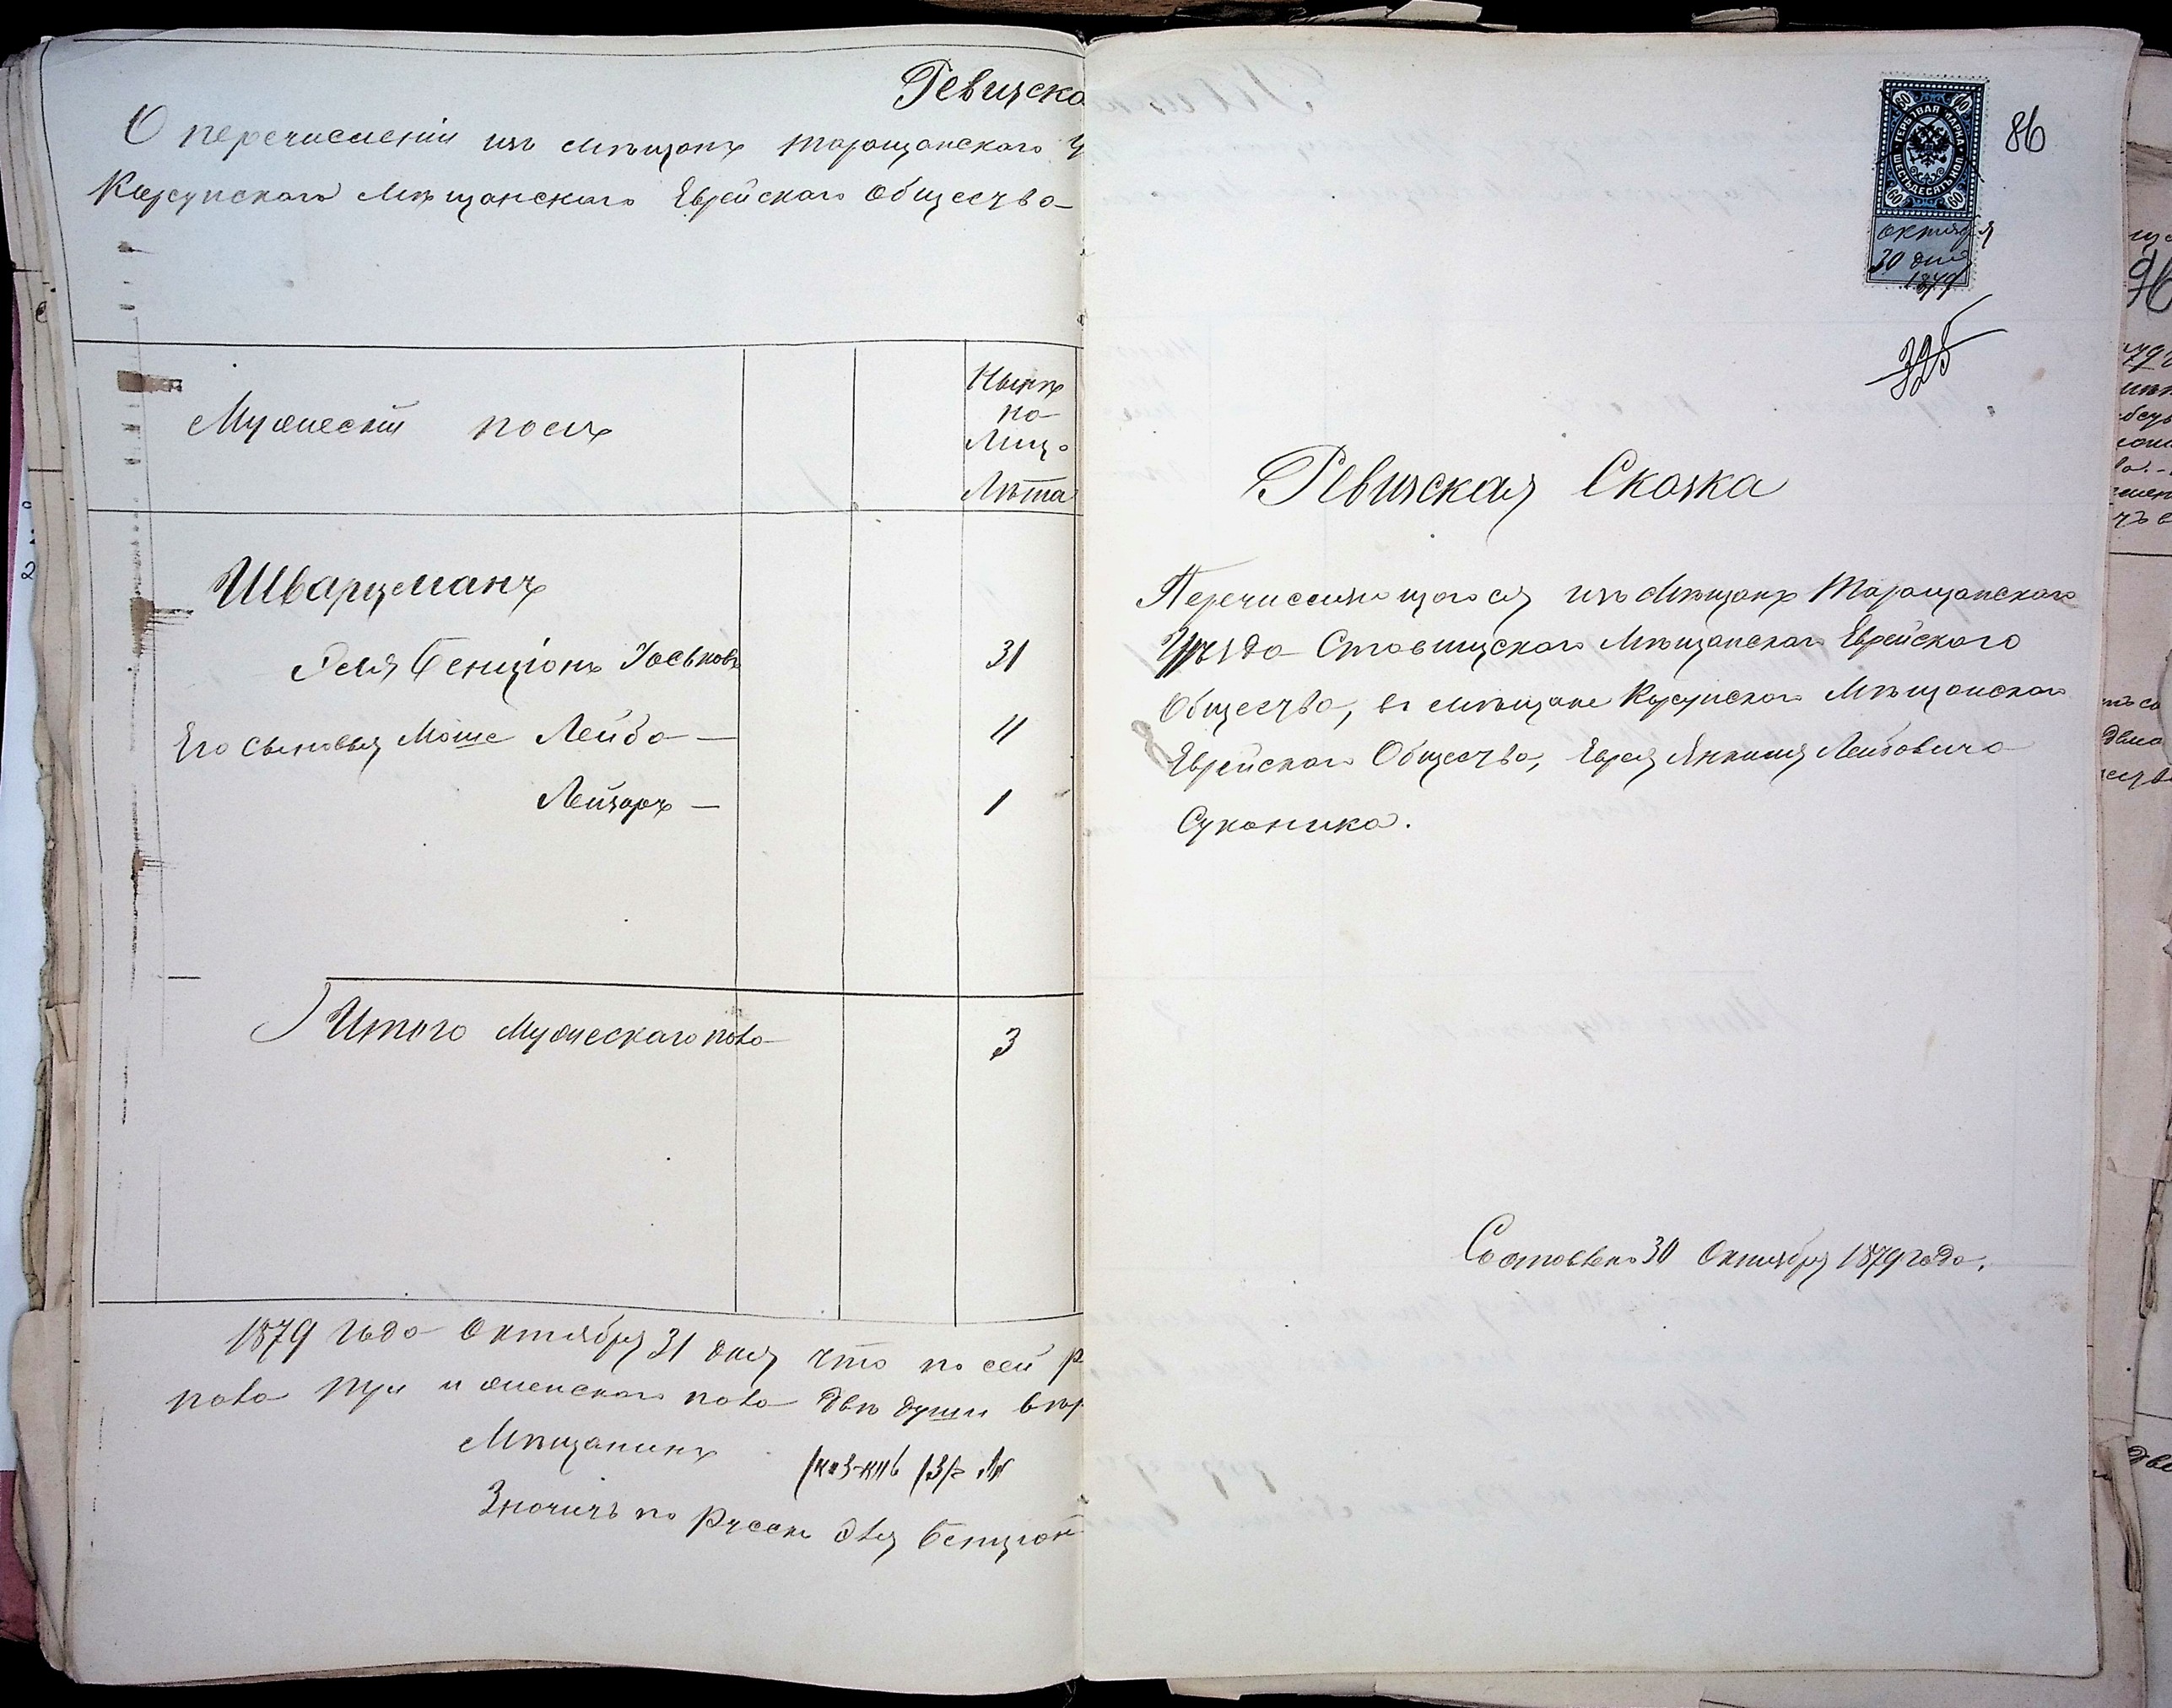 Ревизска
О перечисленіи изъ мѣщанъ Таращанского У
Корсунского Мѣщанского Еврейского Общества
Мужескій полъ
Нынѣ
на
Лицо
Лѣта
Шварцманъ
Бенціонъ Іоськовъ 31
Его сыновья Моше Лейба — 4
Лейзоръ — 1
Итого Мужескаго пола 3
1879 года Октября 31 дня что по сей р
пола три и женского пола двѣ души вѣр
Мѣщанинъ
Значитъ по Русски Бенціон
60 60
ГЕРБОВАЯ МАРКА
ШЕСТЬДЕСЯТЬ КОП.
60 60
октября
30 дня
1879
86
325
Ревизская Сказка
Перечисляющогося изъ Мѣщанъ Таращанского
Уѣзда Ставищского Мѣщанского Еврейского
Общества, въ мѣщане Корсунского Мѣщанского
Еврейского Общества, Еврея Янкеля Лейбовича
Суконика.
Составлена 30 Октября 1879 года.